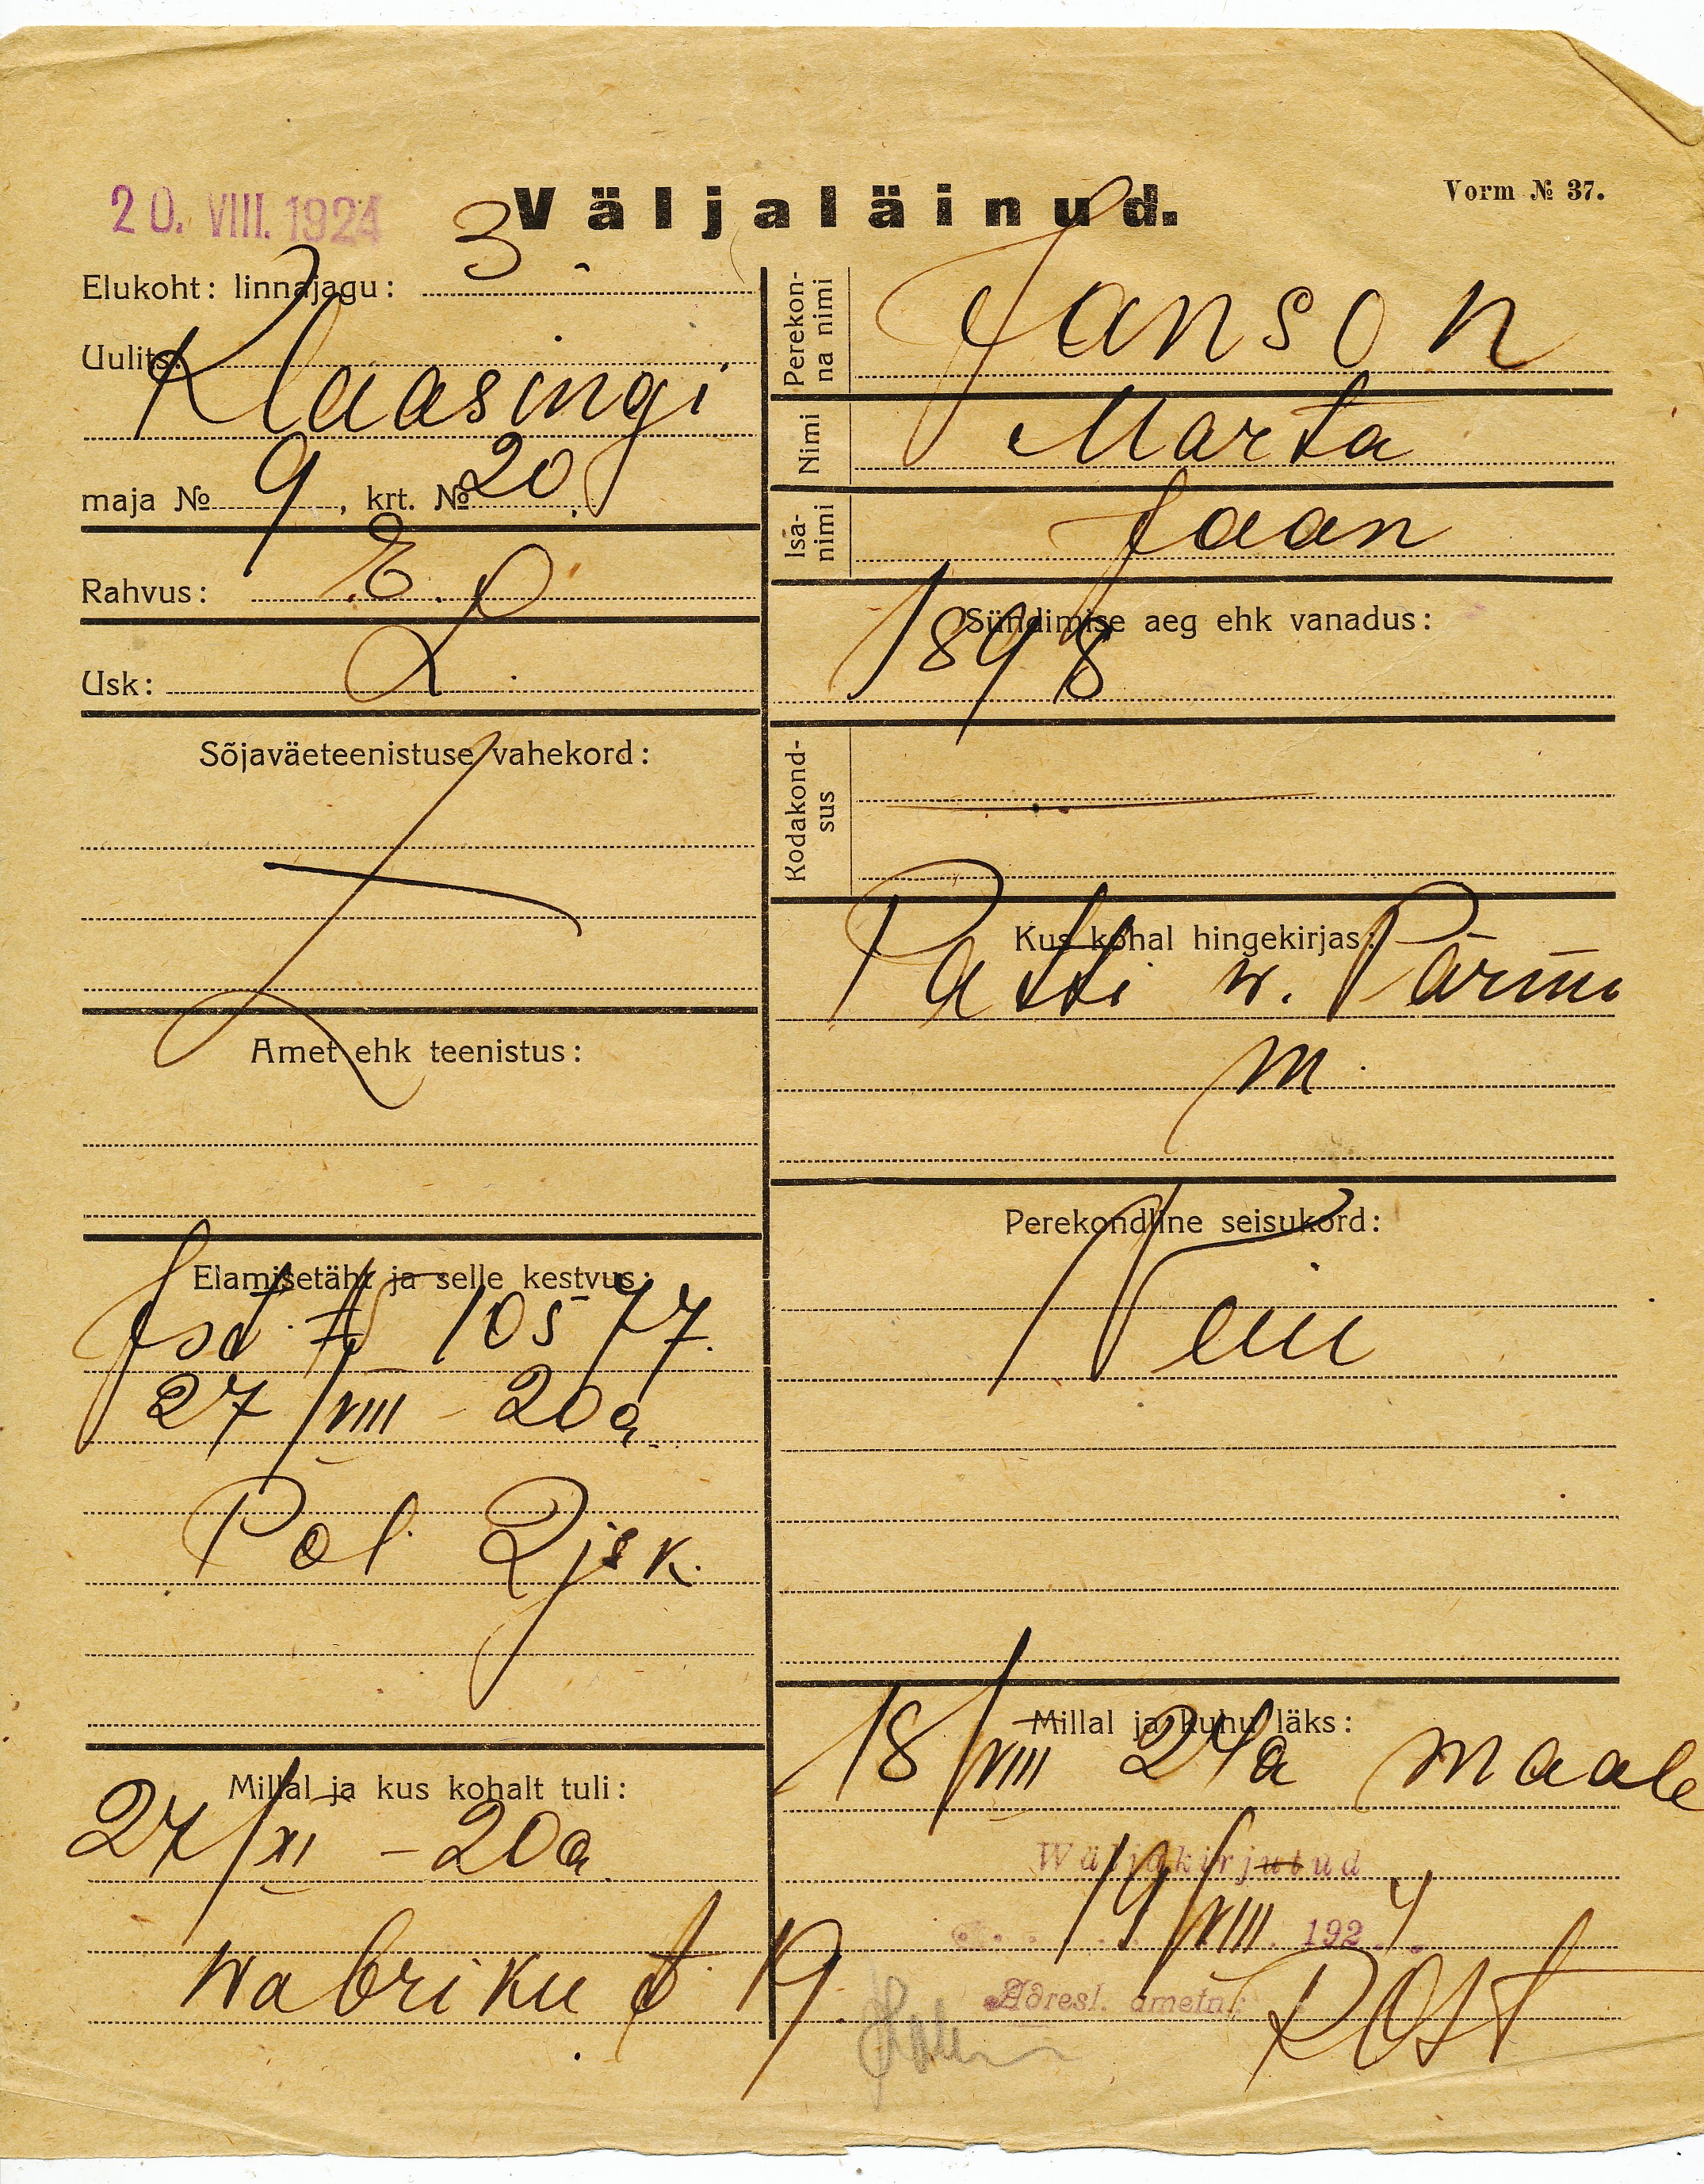 20. VIII. 1924
Väljaläinud.
Vorm № 37.
Elukoht: linnajagu: 3
Uulits:
Klaasingi
maja № 9, krt. № 20
Rahvus: E.
Usk: L.
Sõjaväeteenistuse vahekord:
Amet ehk teenistus:
Elamisetäht ja selle kestvus:
Isd. № 10577.
27/VIII – 20a.
Pol. 2 jsk.
Millal ja kus kohalt tuli:
27/XI – 20a.
Wabriku t. 19.
Perekon-
na nimi
Janson
Nimi
Marta
Isa-
nimi
Jaan
Sündimise aeg ehk vanadus:
1898
Kodakond-
sus
Kus kohal hingekirjas:
Patti w. Pärnu
m.
Perekondline seisukord:
Neiu
Millal ja kuhu läks:
18/VIII 24a maale
Wäljakirjutud
19/VIII 1924.
Adresl. ametn.: Rost